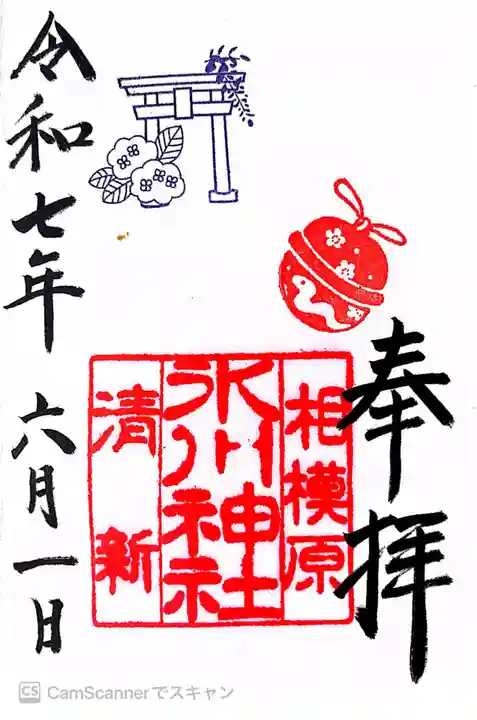 奉拝
相模原
氷川神社
清新
令和七年 六月一日
CS CamScannerでスキャン